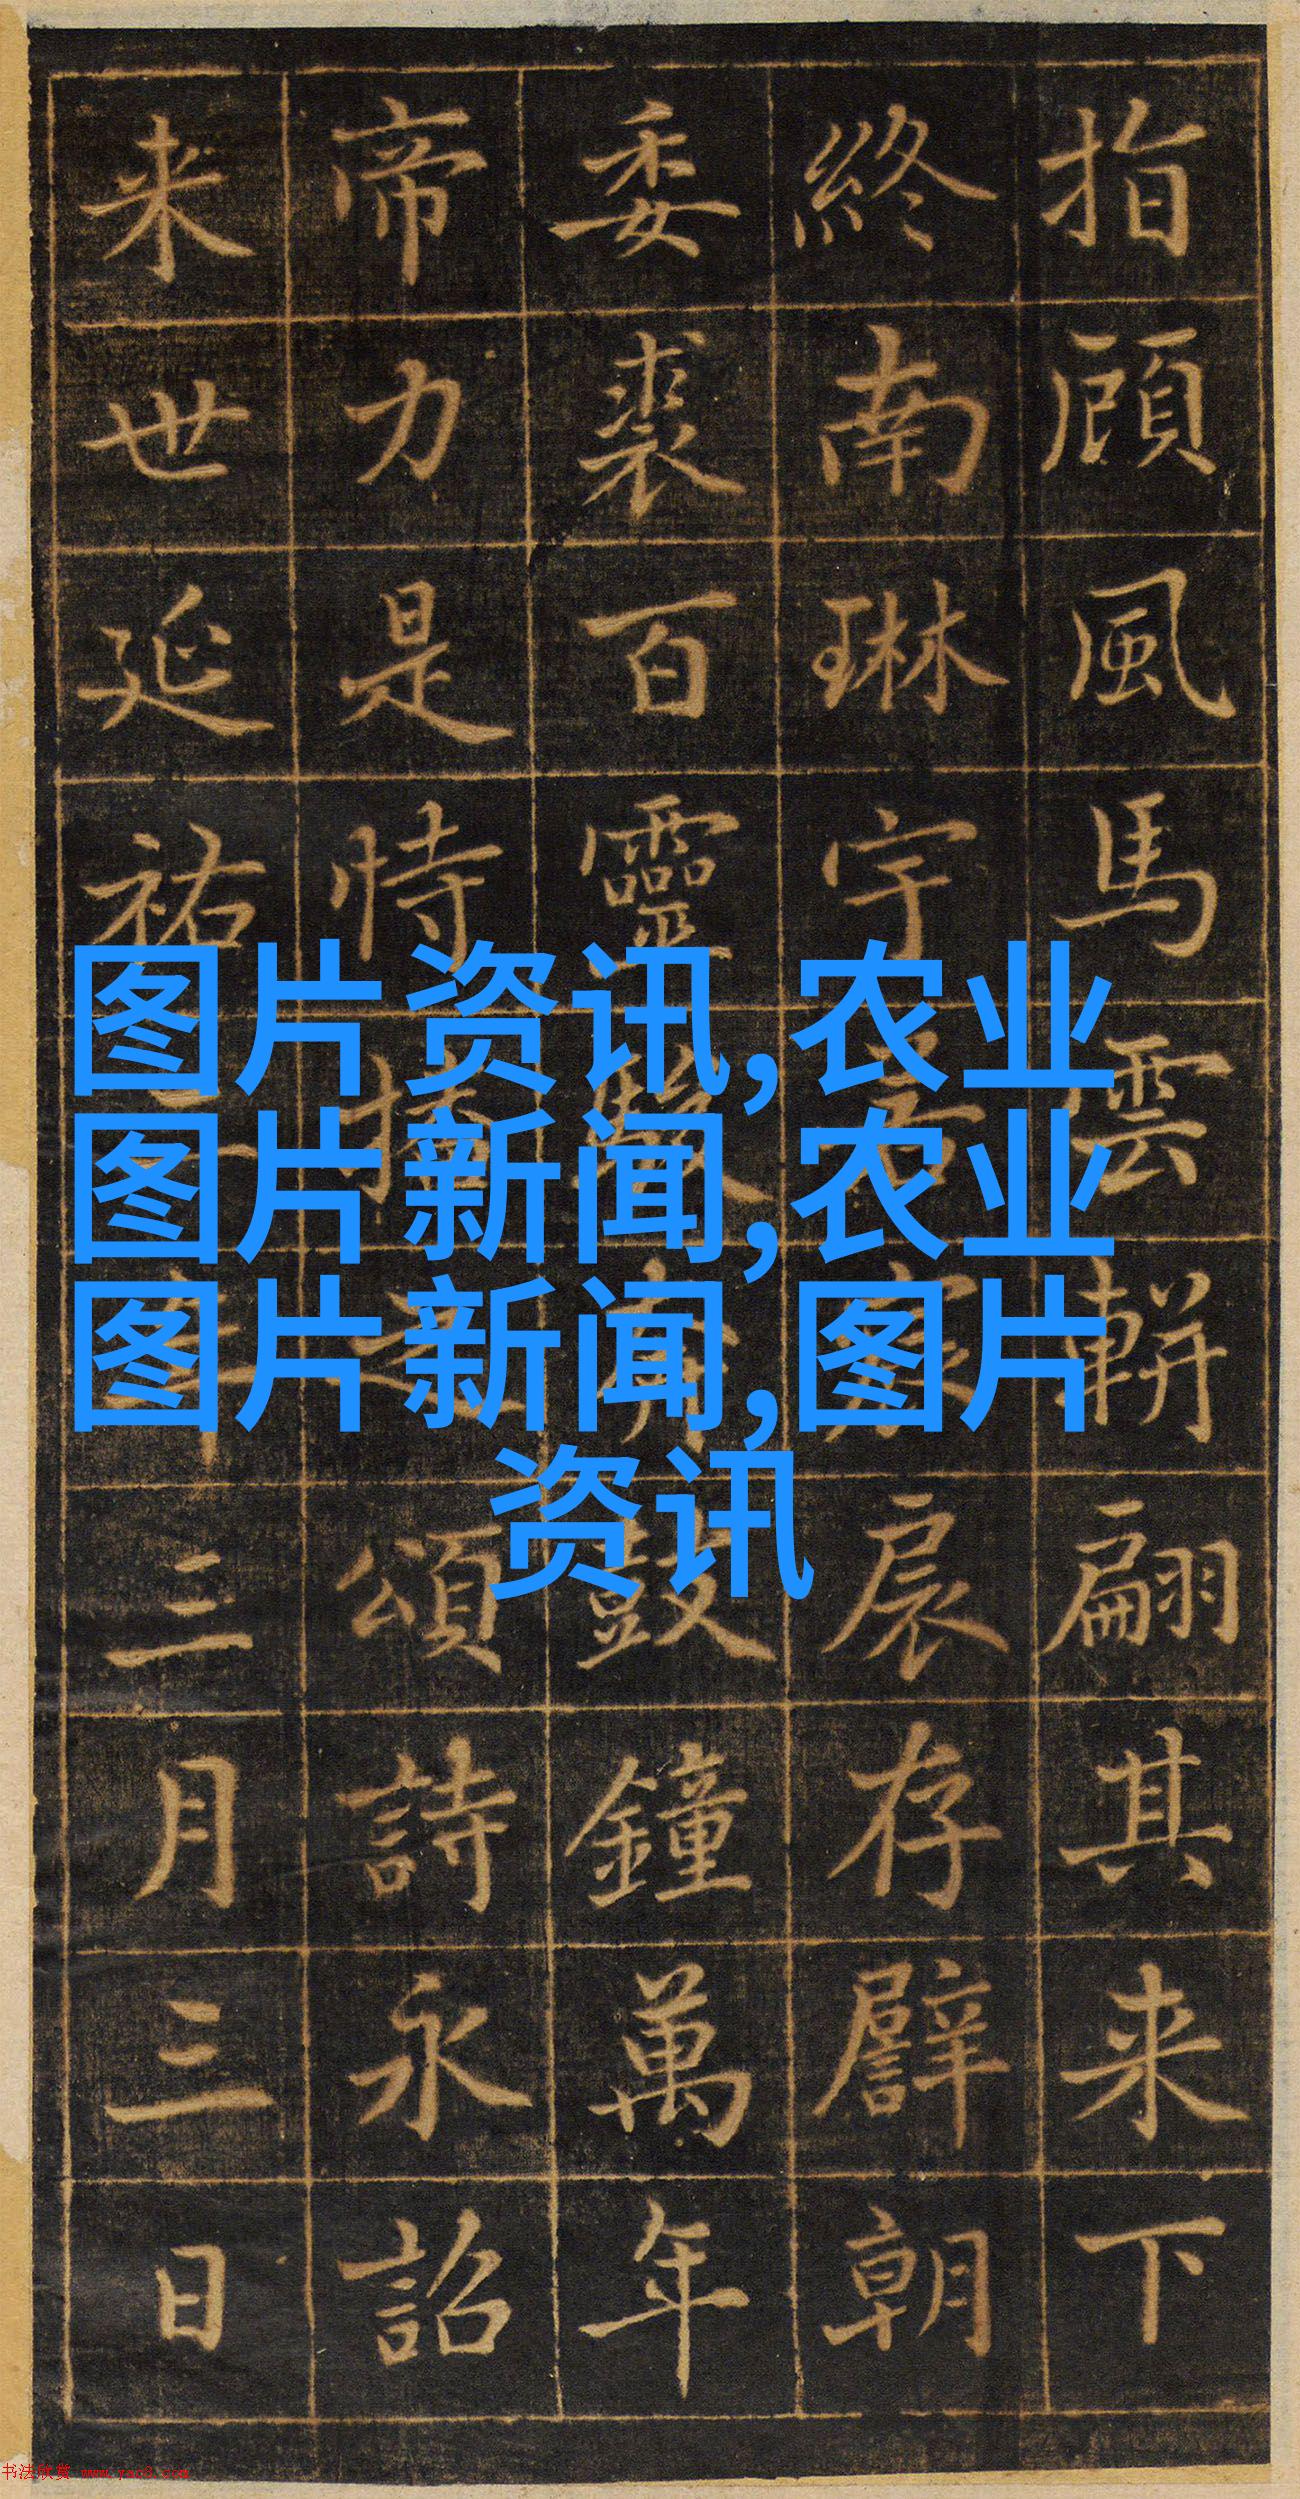 指頋風馬雲軿翩其来下
終南琳宇扆存譬朝
委裘百靈鼓鐘萬年
帝力是恃播頌詩永詔
来世延祐三月三日
图片资讯,农业
图片新闻,农业
图片新闻,图片
资讯
书法欣赏 www.yac8.com